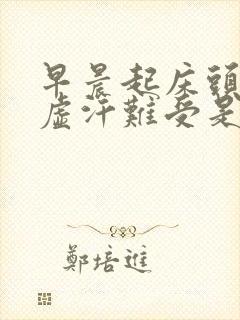 早晨起床頭
虛汗難受是
鄭培進